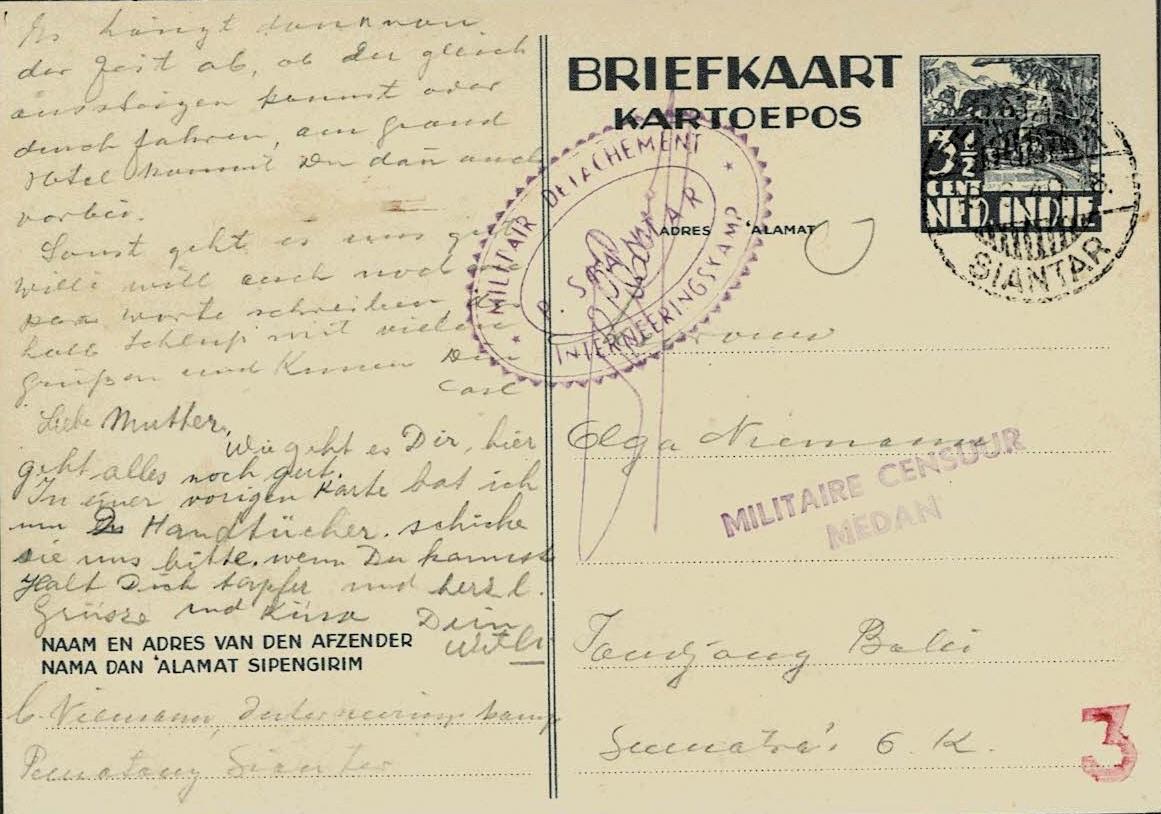 Es hängt dann von
der Zeit ab, ob Du gleich
aussteigen kannst oder
durchfahren, am Grand
Hotel kommst Du dann auch
vorbei.
Sonst geht es uns gut
Willi will auch noch ein
paar worte schreiben
halb Schluß mit vielen
Grüßen und Küssen Dein
Carl
Liebe Mutter,
Wie geht es Dir, hier
geht alles noch gut.
In einer vorigen Karte bat ich
um Handtücher. schicke
sie uns bitte. wenn Du kannst
Halt Dich tapfer und herzl.
Grüsze und Küsse Dein
Willi
NAAM EN ADRES VAN DEN AFZENDER
NAMA DAN 'ALAMAT SIPENGIRIM
C. Niemann, Interneeringskamp
Pematang Siantar
BRIEFKAART
KARTOEPOS
3½
CENT
NED. INDIË
SIANTAR
ADRES 'ALAMAT
MILITAIR DETACHEMENT
P. SIANTAR
INTERNEERINGSKAMP
Mevrouw
Olga Niemann
MILITAIRE CENSUUR
MEDAN
Tandjong Balei
Sumatra's O.K.
3